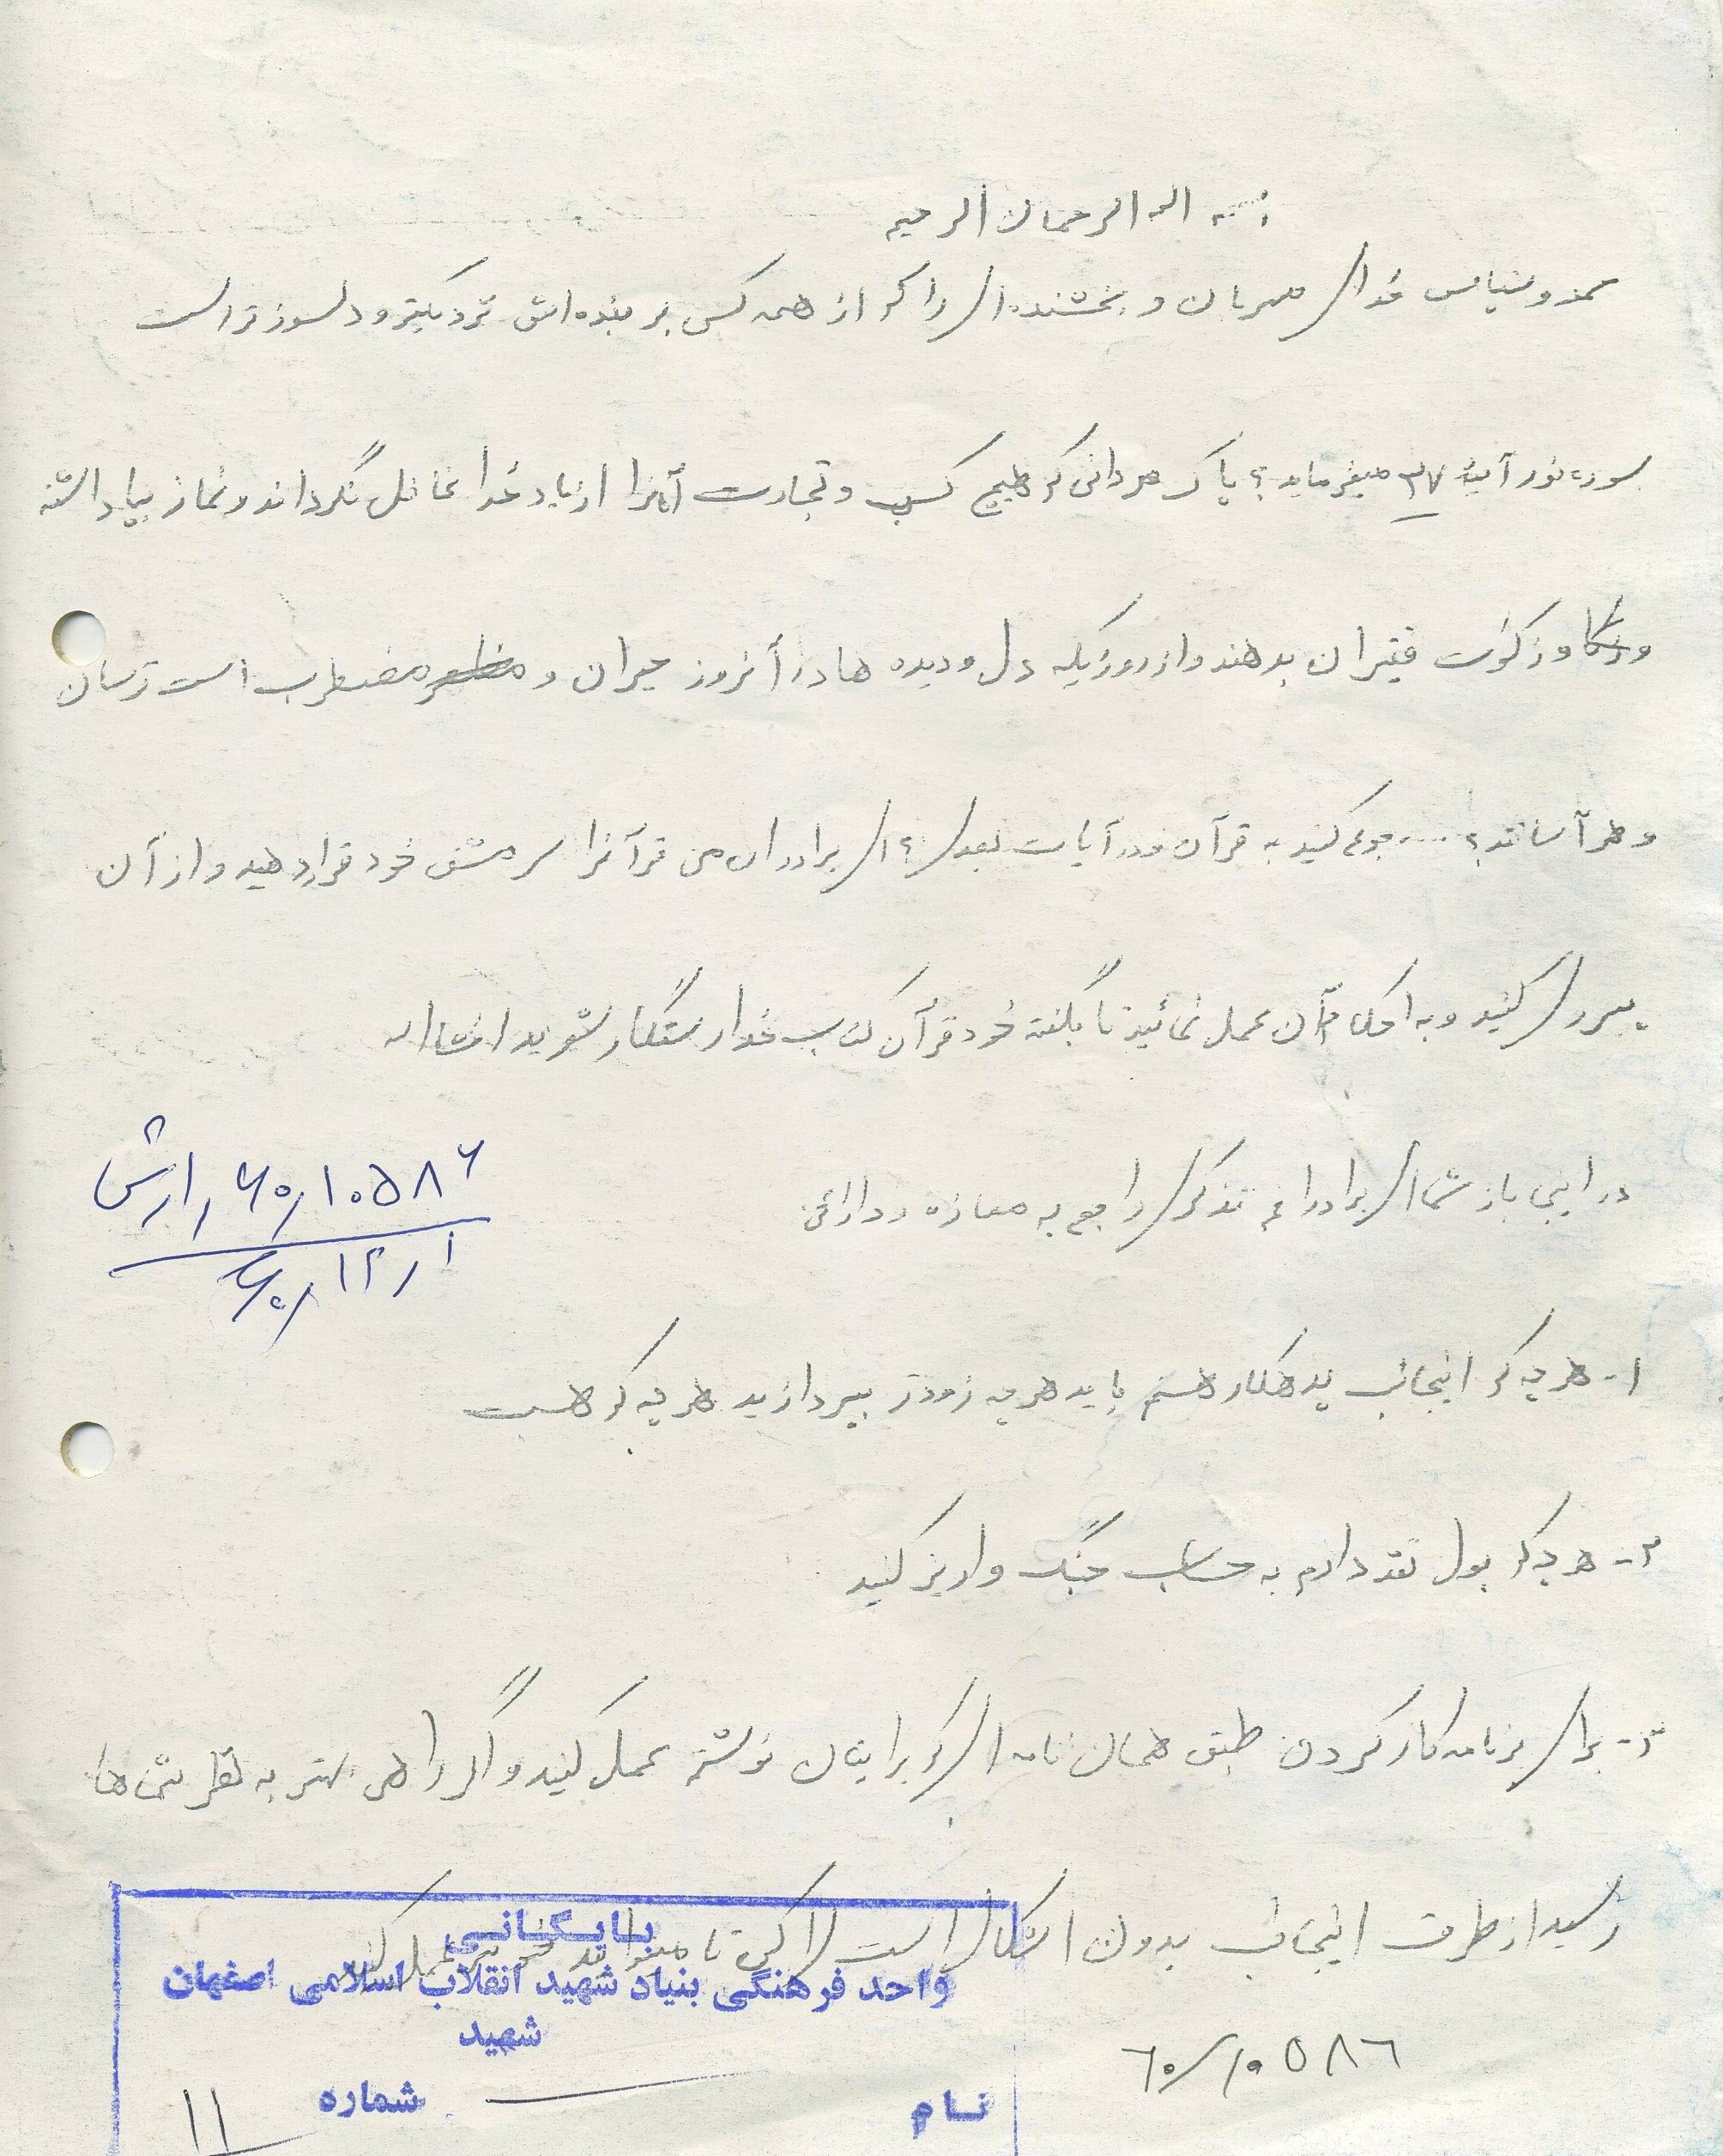 بسمه اله الرحمان الرحیم
حمد و سپاس خدای مهربان و بخشنده ای را که از همه کس بر بنده اش نزدیکتر و دلسوزتر است
سوره نور آیه ۳۷ میفرماید؟ پاک مردانی که هیچ کسب و تجارت آنهارا از یاد خدا غافل نگرداند و نماز بپا داشته
و زکوت فقیران بدهند و از روزیکه دل و دیده ها در آنروز حیران و مضطرب است ترسان
و هراسانند؟ .... رجوع کنید به قرآن و در آیات بعدی؟ ای برادران من قرآنرا سرمشق خود قرار دهید و از آن
پیروی کنید و به احکام قرآن عمل نمائید تا بگفته خود قرآن کتاب خدا رستگار شوید انشااله
در اینجا باز شما ای برادرانم تذکری راجع به مغازه و دارائی
۶۰٫۱۰۵۸۶ ارش
۶۰٫۱۲٫۱
۱- هر چه که اینجانب بدهکار هستم باید هر چه زودتر بپردازید هر چه که هست
۲- هر چه که پول نقد دارم به حساب جنگ واریز کنید
۳- برای برنامه کار کردن طبق همان نامه ای که برایتان نوشتم عمل کنید و اگر راهی بهتر به نظر شما ها
رسید از طرف اینجانب بدون اشکال است لاکن تا میتوانید عمل کنید
بایگانی
واحد فرهنگی بنیاد شهید انقلاب اسلامی اصفهان
شهید
۶۰/۱۰۵۸۶
نام شماره ۱۱